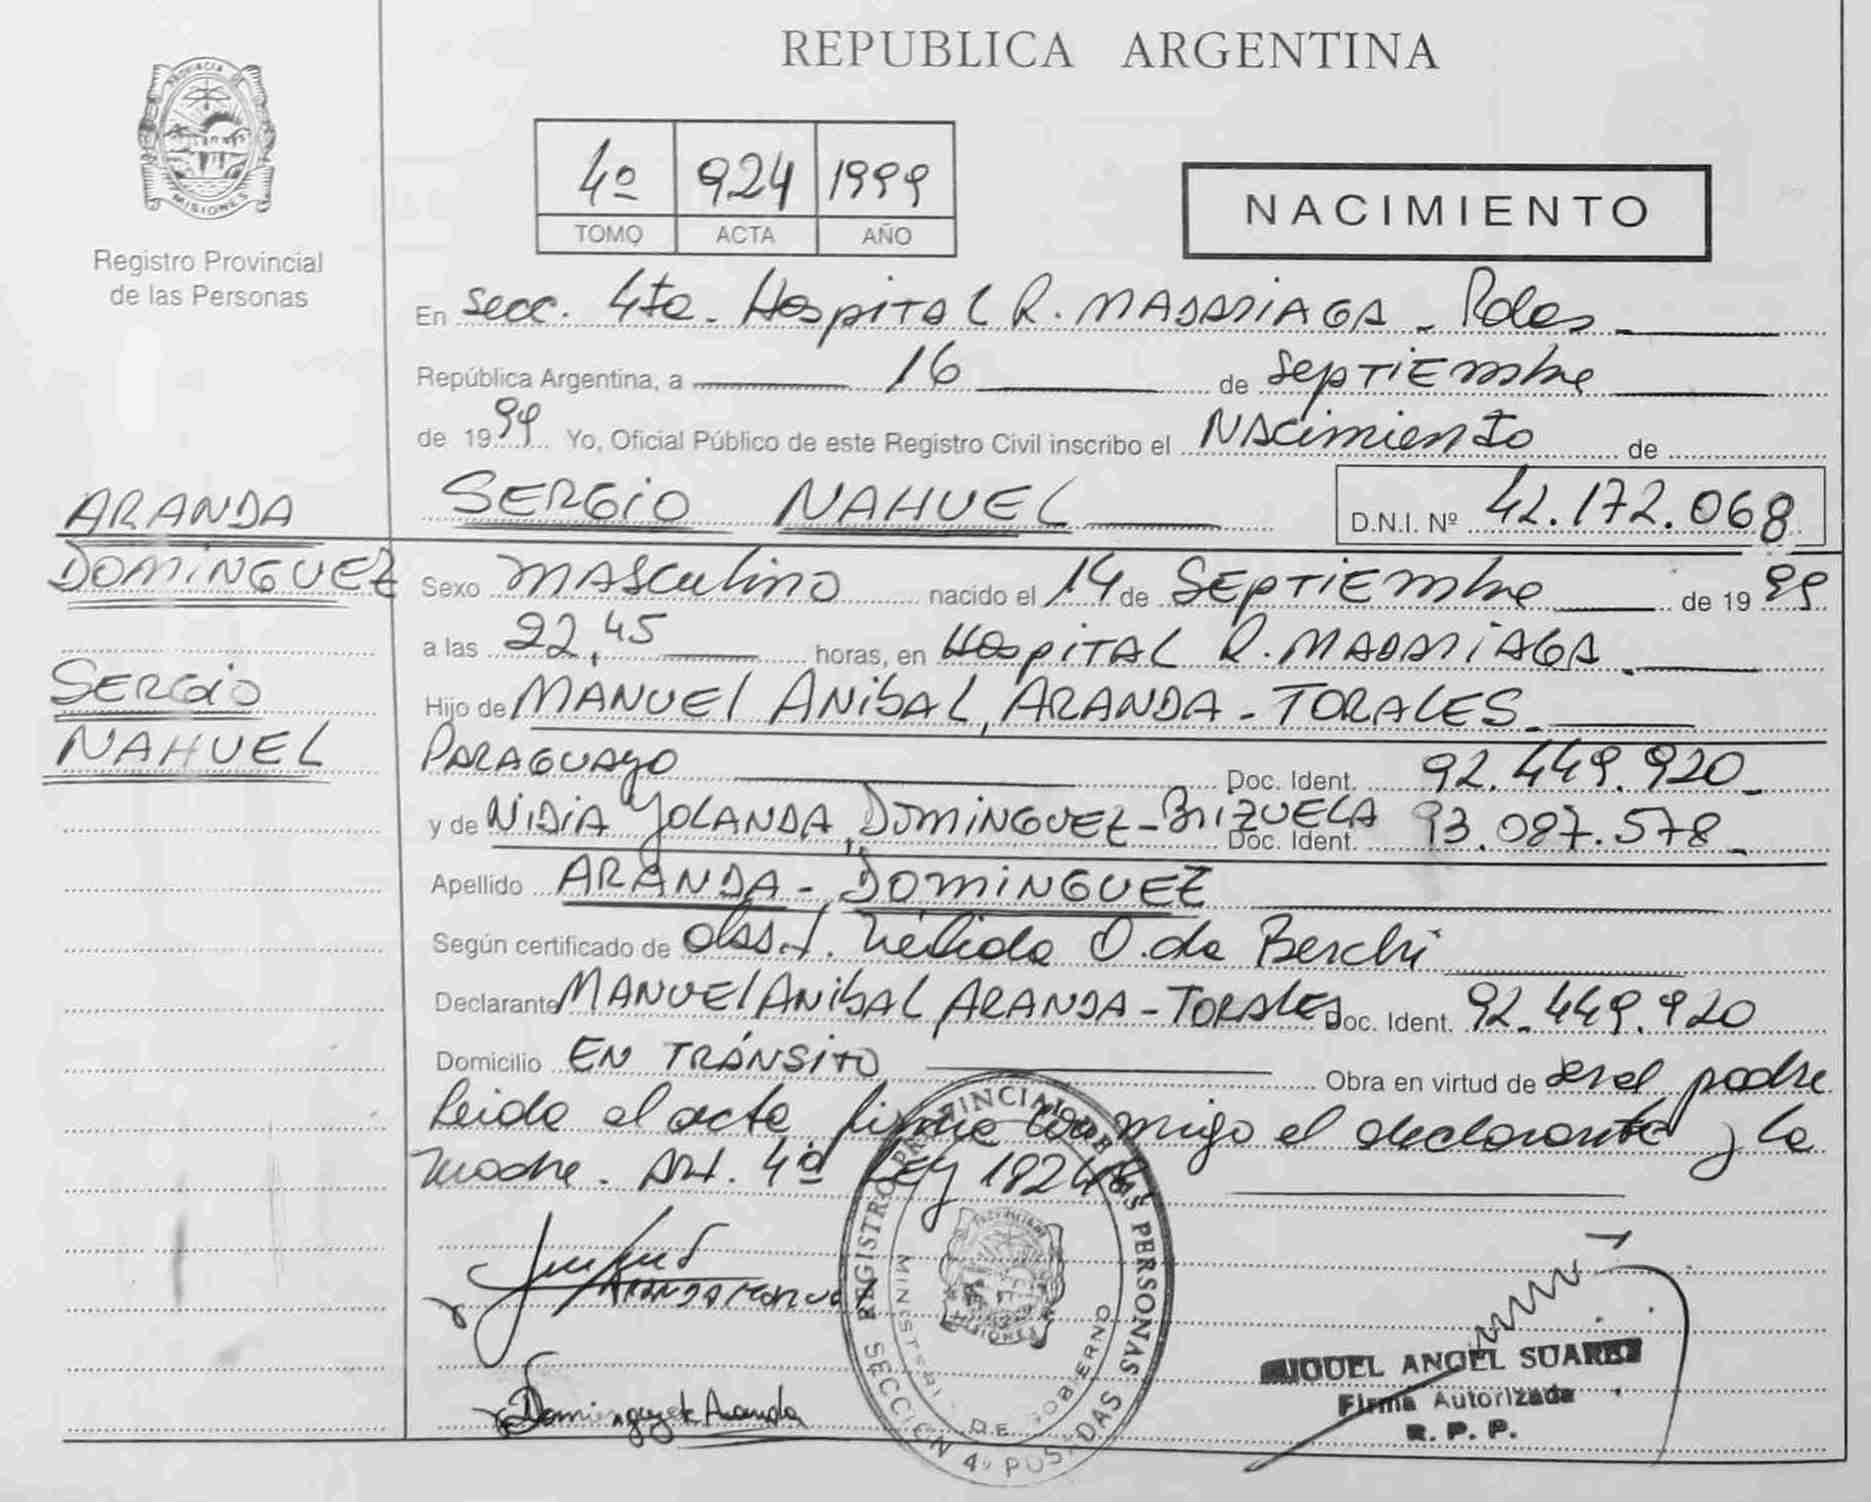 REPUBLICA ARGENTINA
PROVINCIA DE
MISIONES
Registro Provincial
de las Personas
4º 924 1999
TOMO ACTA AÑO
NACIMIENTO
En Secc. 4ta. Hospital R. MADARIAGA - Pdas
República Argentina, a 16 de Septiembre
de 1999 Yo, Oficial Público de este Registro Civil inscribo el Nacimiento de
SERGIO NAHUEL D.N.I. Nº 42.172.068
ARANDA
DOMINGUEZ
SERGIO
NAHUEL
Sexo Masculino nacido el 14 de Septiembre de 1999
a las 22,45 horas, en Hospital R. MADARIAGA.
Hijo de MANUEL ANIBAL, ARANDA - TORALES
PARAGUAYO Doc. Ident. 92.449.920
y de NIDIA YOLANDA, DOMINGUEZ - BRIZUELA Doc. Ident. 93.087.578
Apellido ARANDA - DOMINGUEZ
Según certificado de Obst. Nélida O. de Berchi
Declarante MANUEL ANIBAL ARANDA - TORALES Doc. Ident. 92.449.920
Domicilio EN TRÁNSITO Obra en virtud de ser el padre
Leida el acta firma conmigo el declarante y la
madre. Art. 4º Ley 18248
ARANDA MANUEL
Dominguez Aranda
REGISTRO PROVINCIAL DE LAS PERSONAS
MINISTERIO DE GOBIERNO
SECCION 4º POSADAS
MIGUEL ANGEL SUAREZ
Firma Autorizada
R. P. P.